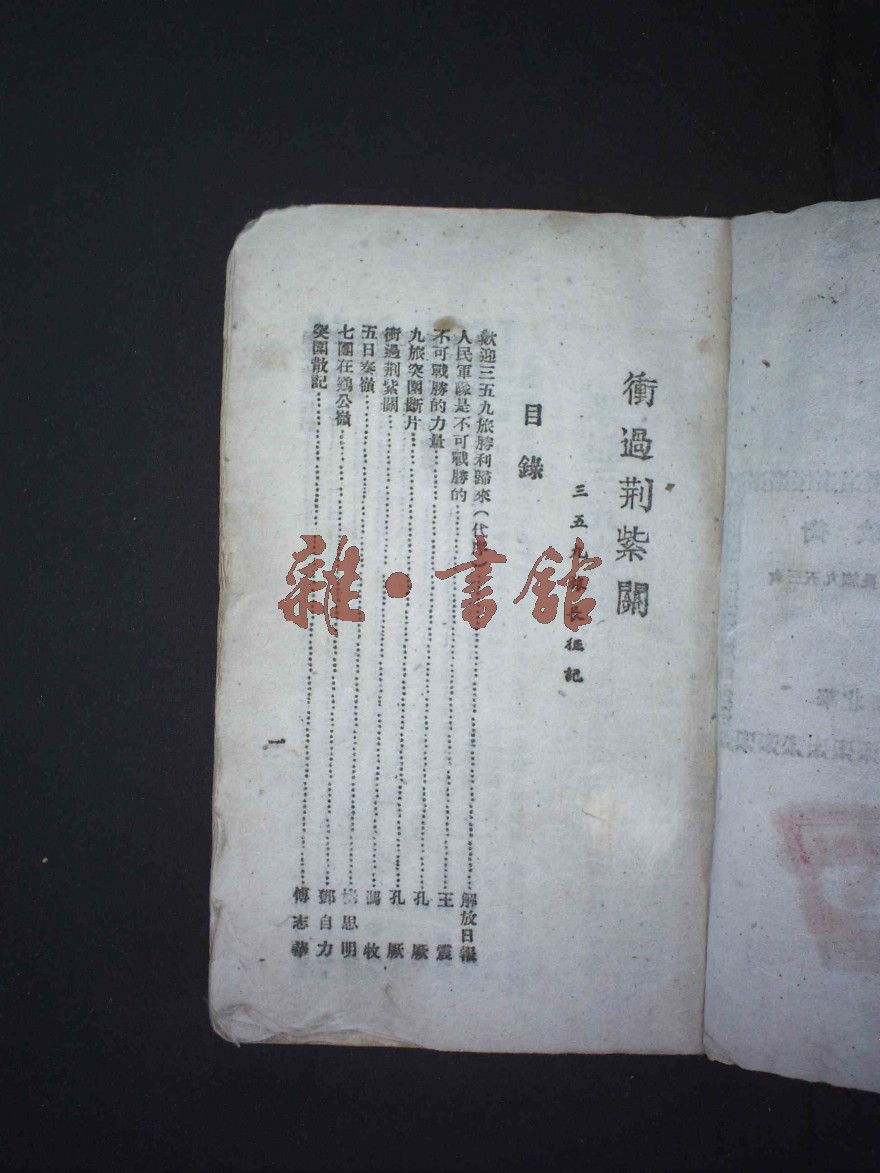 衝過荆紫關
三五九旅長征記
目錄
歡迎三五九旅勝利歸來(代序)……解放日報
人民軍隊是不可戰勝的……王震
不可戰勝的力量……孔厥
九旅突圍斷片……孔厥
衝過荆紫關……馮牧
五日秦嶺……思明
七團在鷄公嶺……鄧自力
突圍散記……傅志華
一
雜·書館